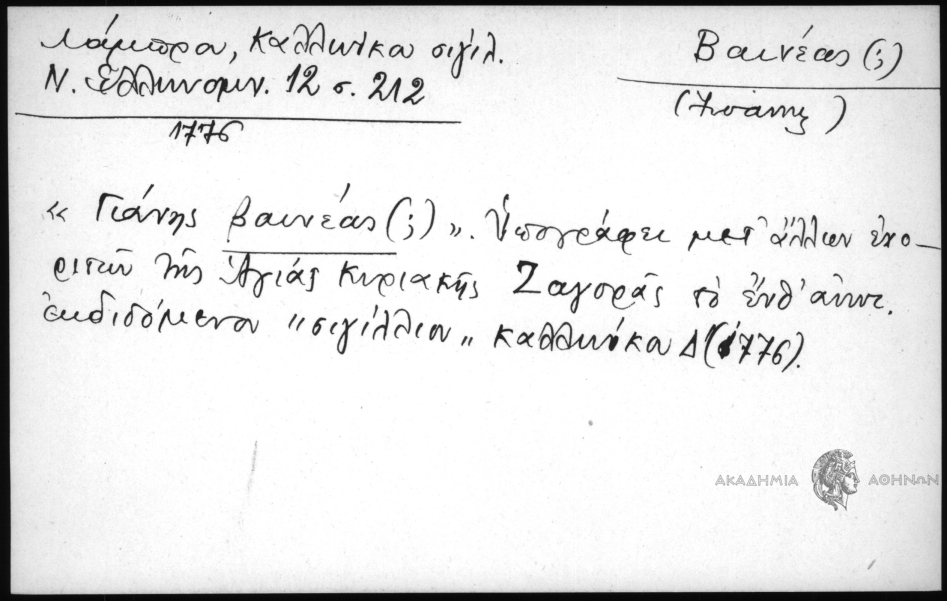 Λάμπρου, Καλλινίκου σιγίλ.
Ν. Ἑλληνομν. 12 σ. 212
1776
Βαινέας (;)
(Γιάννης)
« Γιάννης Βαινέας (;) ». Ὑπογράφει μετ' ἄλλων ἐνο-
ριτῶν τῆς Ἁγιάς Κυριακῆς Ζαγορᾶς τὸ ἔνθ' ἀνωτ.
ἐκδιδόμενον "σιγίλλιον" Καλλινίκου Δ (1776).
ΑΚΑΔΗΜΙΑ ΑΘΗΝΩΝ